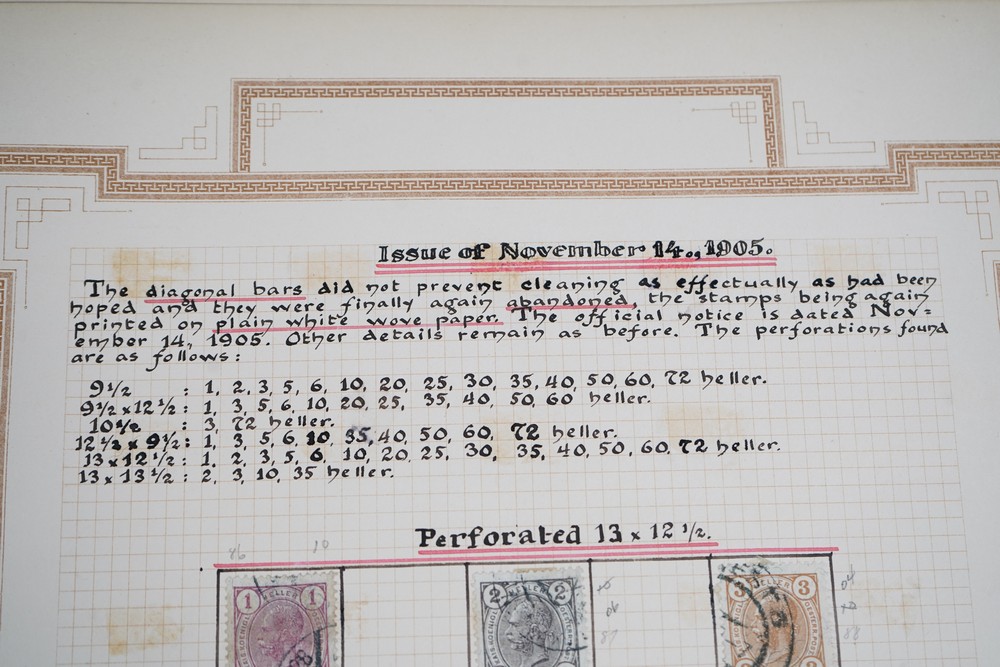 Issue of November 14, 1905.
The diagonal bars did not prevent cleaning as effectually as had been
hoped and they were finally again abandoned, the stamps being again
printed on plain white wove paper. The official notice is dated Nov=
ember 14, 1905. Other details remain as before. The perforations found
are as follows:
9 1/2 : 1, 2, 3, 5, 6, 10, 20, 25, 30, 35, 40, 50, 60, 72 heller.
9 1/2 x 12 1/2 : 1, 3, 5, 6, 10, 20, 25, 35, 40, 50, 60 heller.
10 1/2 : 3, 72 heller.
12 1/2 x 9 1/2 : 1, 3, 5, 6, 10, 35, 40, 50, 60, 72 heller.
13 x 12 1/2 : 1, 2, 3, 5, 6, 10, 20, 25, 30, 35, 40, 50, 60, 72 heller.
13 x 13 1/2 : 2, 3, 10, 35 heller.
Perforated 13 x 12 1/2.
1 HELLER 1
2 HELLER 2
3 HELLER 3